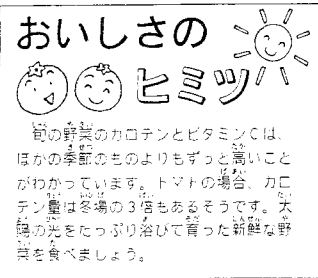 おいしさの
ヒミツ
旬の野菜のカロテンとビタミンCは、
ほかの季節のものよりもずっと高いこと
がわかっています。トマトの場合、カロ
テン量は冬場の3倍もあるそうです。太
陽の光をたっぷり浴びて育った新鮮な野
菜を食べましょう。